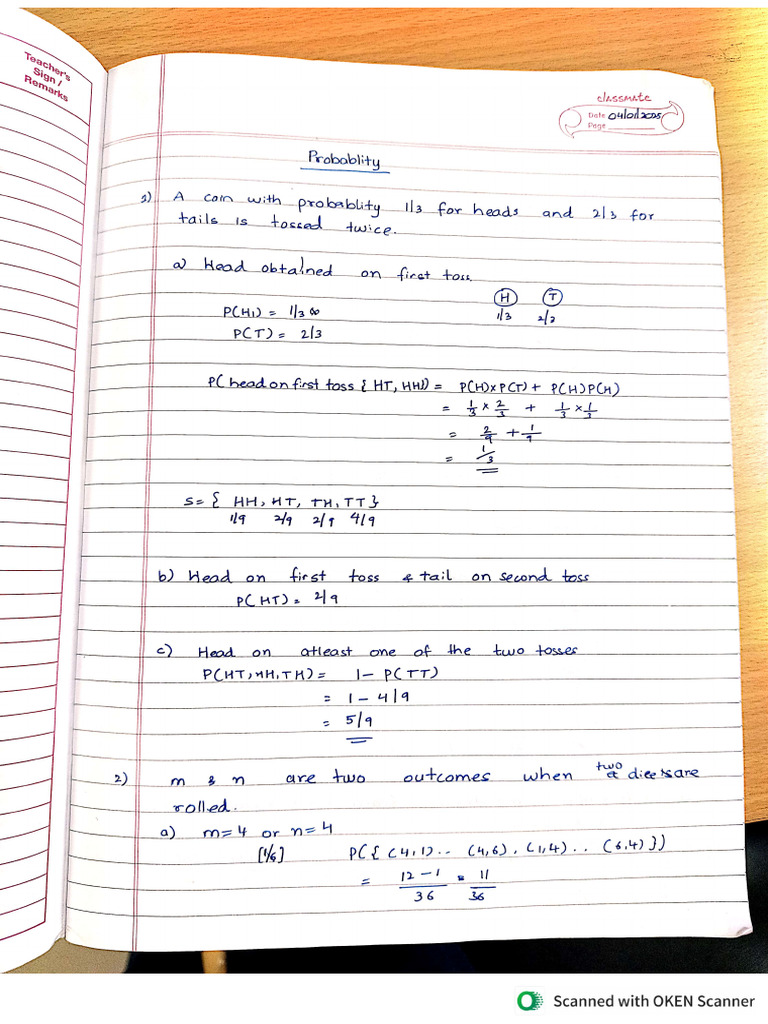 Teacher's
Sign /
Remarks
classmate
Date 04/01/2025
Page
Probablity
1) A coin with probablity 1/3 for heads and 2/3 for
tails is tossed twice.
a) Head obtained on first toss
H T
P(H) = 1/3
1/3 2/3
P(T) = 2/3
P( head on first toss { HT, HH}) = P(H)×P(T) + P(H)P(H)
= 1/3 × 2/3 + 1/3 × 1/3
= 2/9 + 1/9
= 1/3
S = { HH, HT, TH, TT }
1/9 2/9 2/9 4/9
b) Head on first toss & tail on second toss
P( HT) = 2/9
c) Head on atleast one of the two tosses
P(HT, HH, TH) = 1 - P(TT)
= 1 - 4/9
= 5/9
2) m & n are two outcomes when two dices are
rolled.
a) m=4 or n=4 P({ (4,1).. (4,6), (1,4).. (6,4) })
[1/6]
= 12-1/36 = 11/36
Scanned with OKEN Scanner